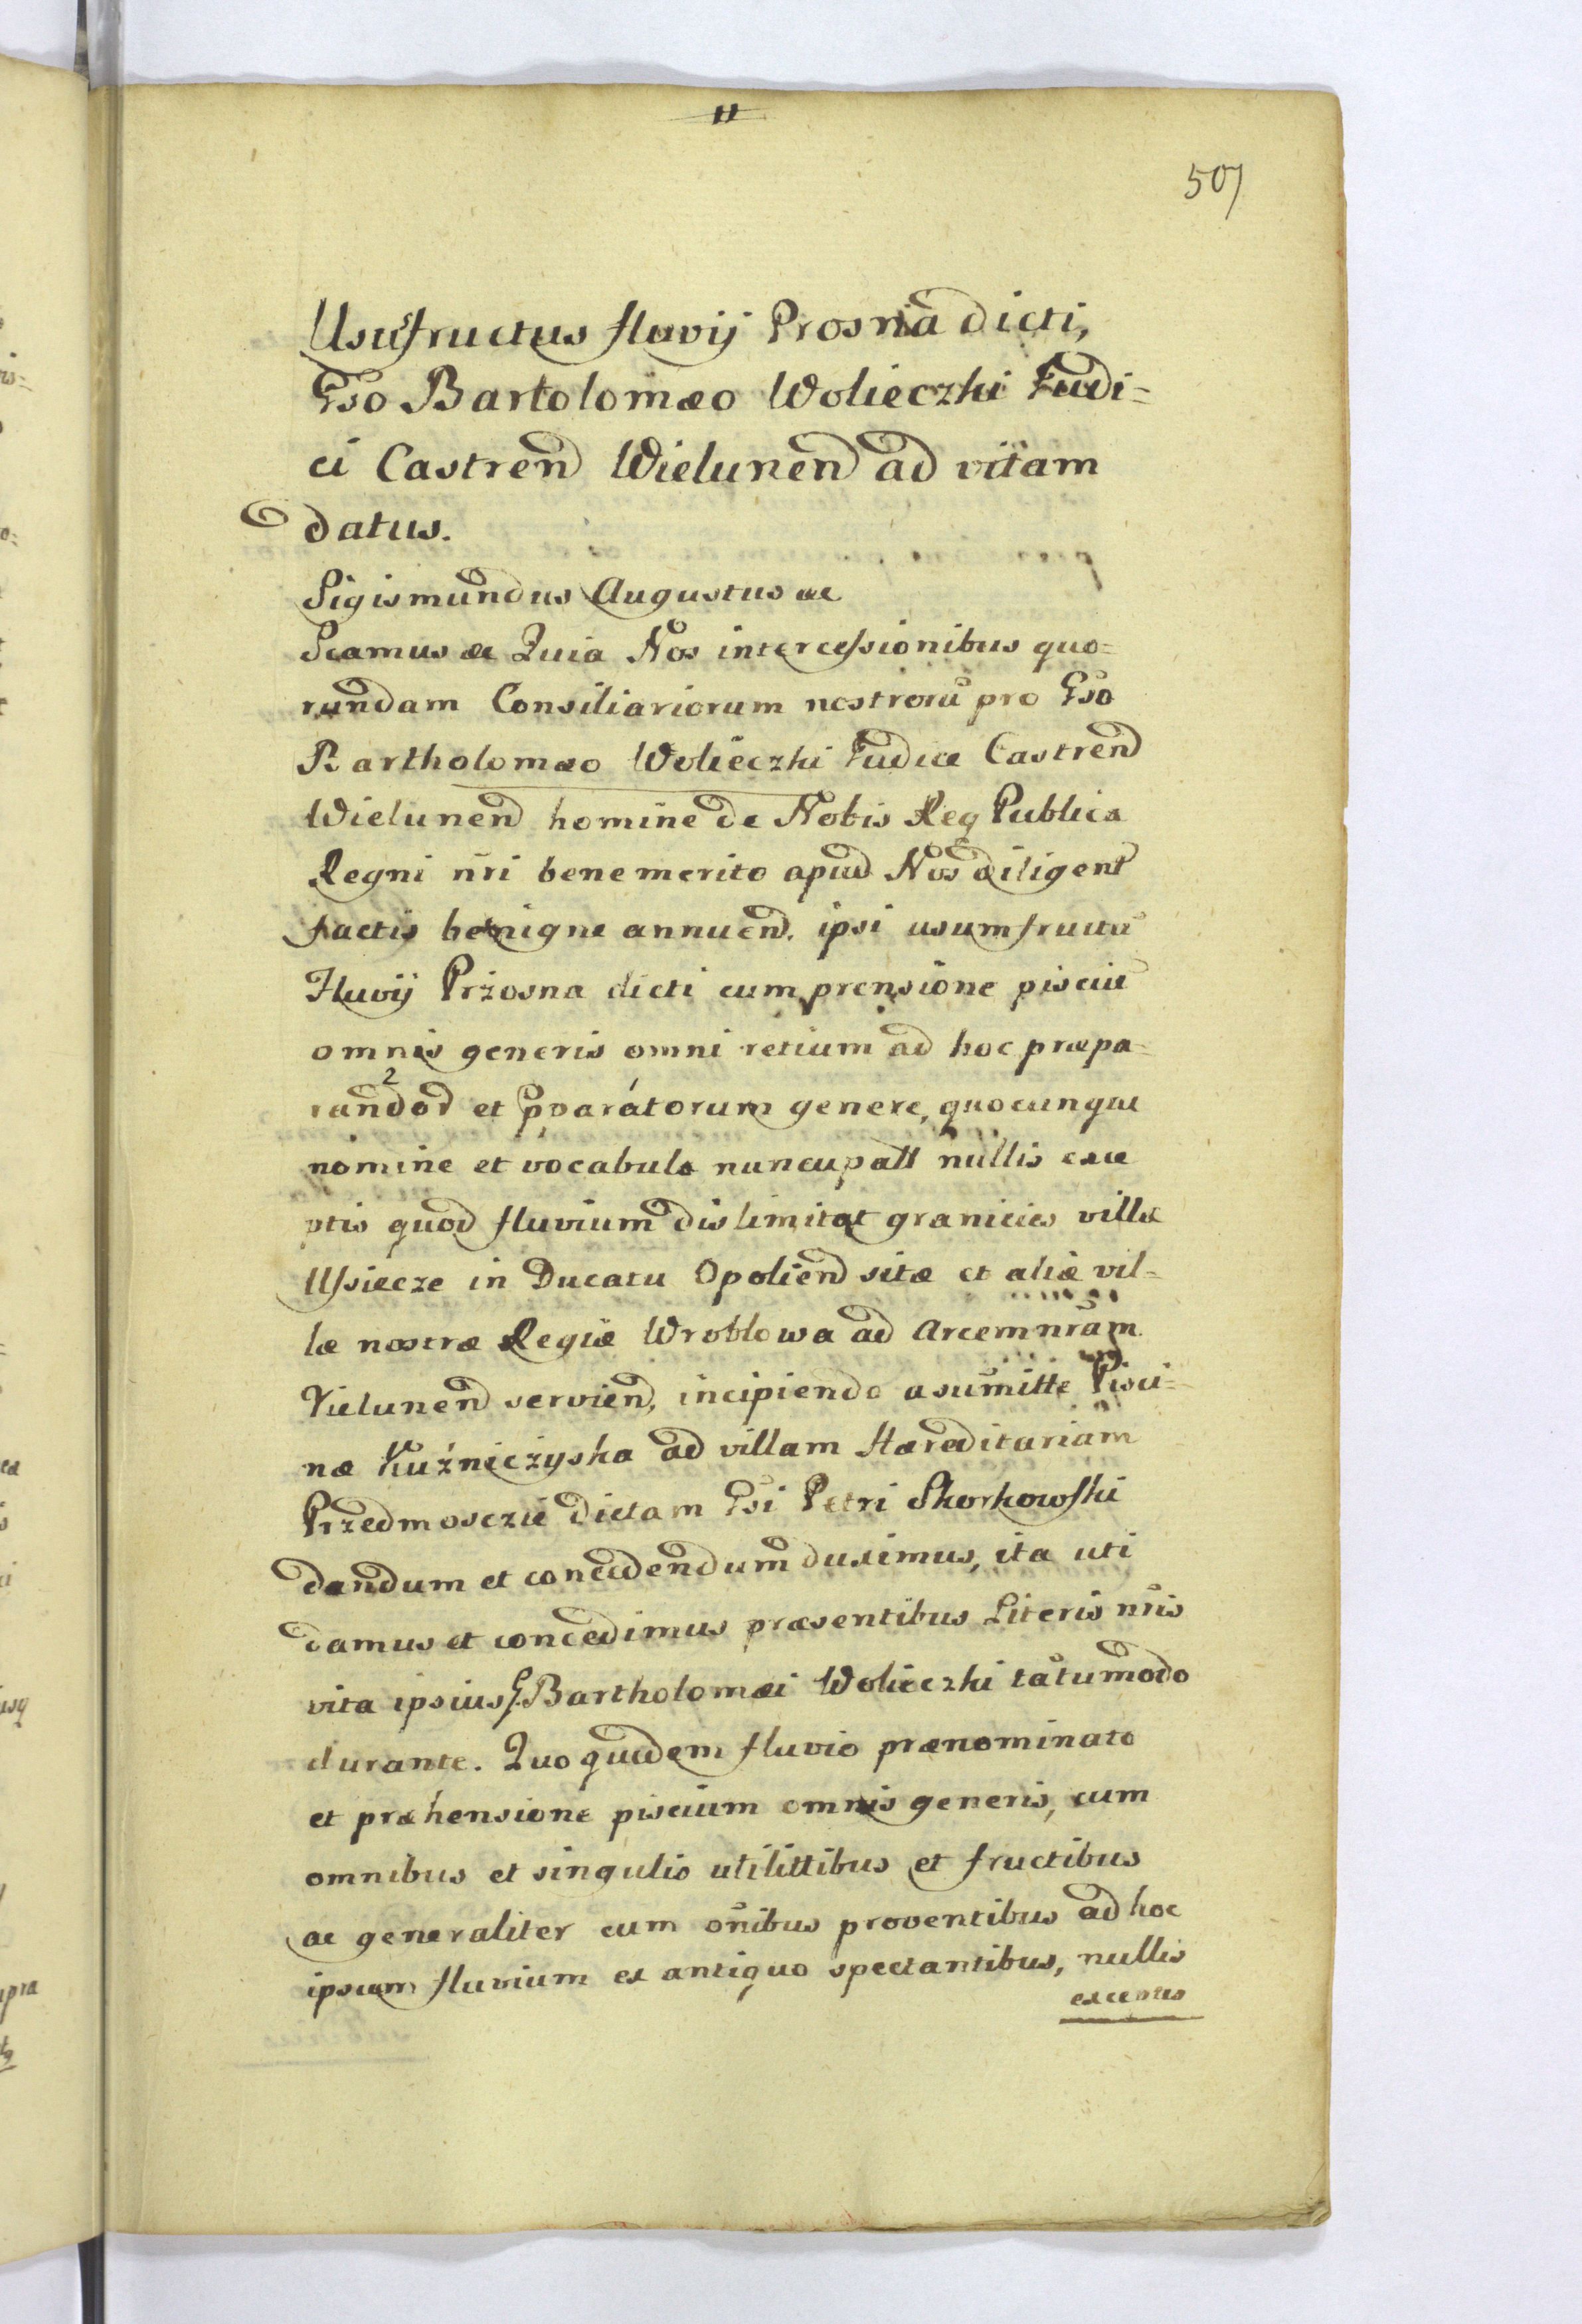 11
507
Ususfructus fluvij Prosna dicti,
Gso Bartolomæo Wolieczki Judi=
ci Castren Wielunen ad vitam
datus.
Sigismundus Augustus ac
Sciamus ac Quia Nos intercessionibus quo=
rundam Consiliariorum nostrorū pro Gso
Bartholomæo Wolieczki Judice Castren
Wielunen homine de Nobis Req Publica
Regni nri benemerito apud Nos diligent
factis benigne annuen. ipsi usumfructū
Fluvij Pržosna dicti cum prensione pisciū
omnis generis omni retium ad hoc præpa=
randor et pparátorum genere, quocunque
nomine et vocabulo nuncupatt nullis exce
ptis quod fluvium dislimitat granicies villæ
Ussiecze in Ducatu Opolien sitæ et aliæ vil=
læ nostræ Regiæ Wroblowa ad Arcem nram
Vielunen servien, incipiendo a sumitte Pisci=
næ Kuźniczyska ad villam Hæreditariam
Przedmosczie dictam Gsi Petri Skorkowski
dandum et concedendum duximus, ita uti
damus et concedimus præsentibus Literis nris
vita ipsius G. Bartholomæi Wolieczki tātumodo
durante. Quo quidem fluvio prænominato
et præhensione piscium omnis generis, cum
omnibus et singulis utilittibus et fructibus
ac generaliter cum onibus proventibus ad hoc
ipsum fluvium ex antiquo spectantibus, nullis
exceptis